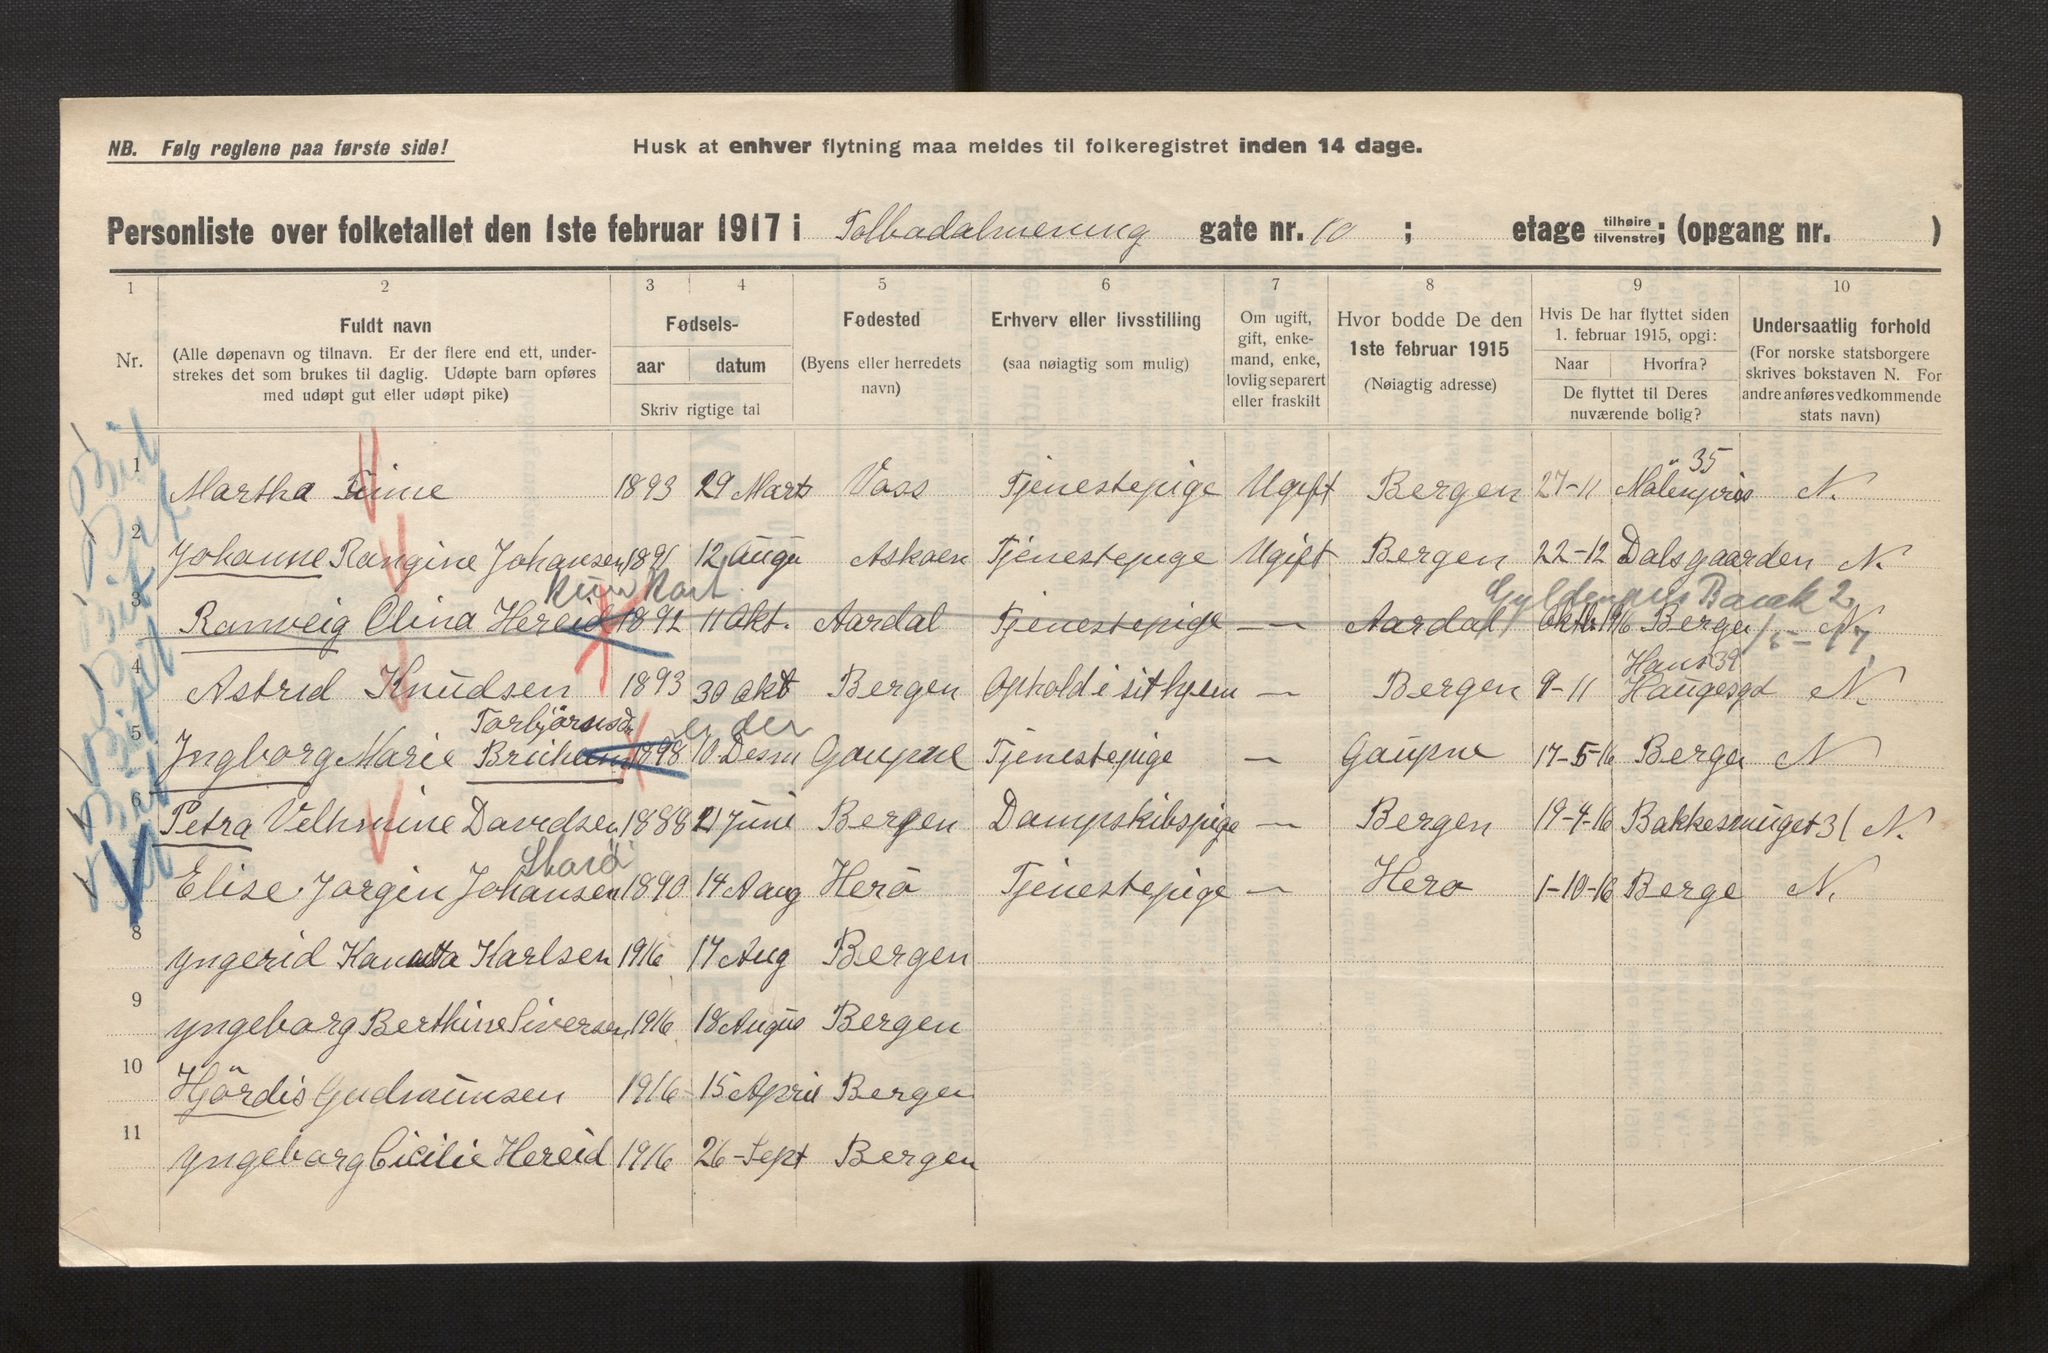 NB. Følg reglene paa første side!
Husk at enhver flytning maa meldes til folkeregistret inden 14 dage.
Personliste over folketallet den 1ste februar 1917 i Tolbodalmenning gate nr. 10 ; etage tilhøire tilvenstre; (opgang nr. )
1 2 3 4 5 6 7 8 9 10
Nr.
Fuldt navn
(Alle døpenavn og tilnavn. Er der flere end ett, under-
strekes det som brukes til daglig. Udøpte barn opføres
med udøpt gut eller udøpt pike)
Fødsels-
aar datum
Skriv rigtige tal
Fødested
(Byens eller herredets
navn)
Erhverv eller livsstilling
(saa nøiagtig som mulig)
Om ugift,
gift, enke-
mand, enke,
lovlig separert
eller fraskilt
Hvor bodde De den
1ste februar 1915
(Nøiagtig adresse)
Hvis De har flyttet siden
1. februar 1915, opgi:
Naar Hvorfra?
De flyttet til Deres
nuværende bolig?
Undersaatlig forhold
(For norske statsborgere
skrives bokstaven N. For
andre anføres vedkommende
stats navn)
35
1 Martha 1893 29 Marts Voss Tjenestepige Ugift Bergen 27-11 Mölenpris N.
2 Johanne Rangine Johansen 1891 12 Augu Askoen Tjenestepige Ugift Bergen 22-12 Dalsgaarden N.
Gyldenpris Bank 2
3 Ranveig Olina Hereid 1892 11 Okt. Aardal Tjenestepige — Aardal Oktb 1916 Bergen N
Hans 39
4 Astrid Knudsen 1893 30 okt Bergen Ophold i sit hjem — Bergen 9-11 Haugesgd N.
Torbjörnsd er den
5 Yngborg Marie Bruheim 1898 10 Desm Gaupne Tjenestepige — Gaupne 17-5-16 Berge N
6 Petra Velhmine Davidsen 1888 21 Juni Bergen Dampskibspige — Bergen 19-4-16 Bakkesmuget 31 N.
7 Elise Jorgin Johansen 1890 14 Aaug Herö Tjenestepige — Hero 1-10-16 Berge N.
8 Yngerid Karlsen 1916 17 Aug Bergen
9 Yngeborg Berthine Siversen 1916 18 Augus Bergen
10 Hjördis Gudmunsen 1916 15 April Bergen
11 Yngeborg Cicilie Hereid 1916 26 Sept Bergen